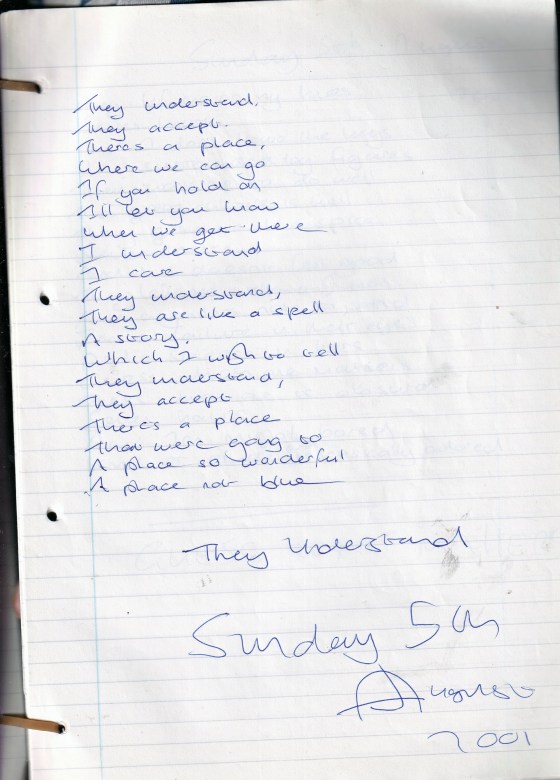 They understand.
They accept.
Theres a place,
Where we can go
If you hold on
I'll let you know
When we get there
I understand
I care
They understand,
They are like a spell
A story.
Which I wish to tell
They understand,
They accept
Theres a place
That were going to
A place so wonderful
A place not blue
They Understand
Sunday 5th
August
2001